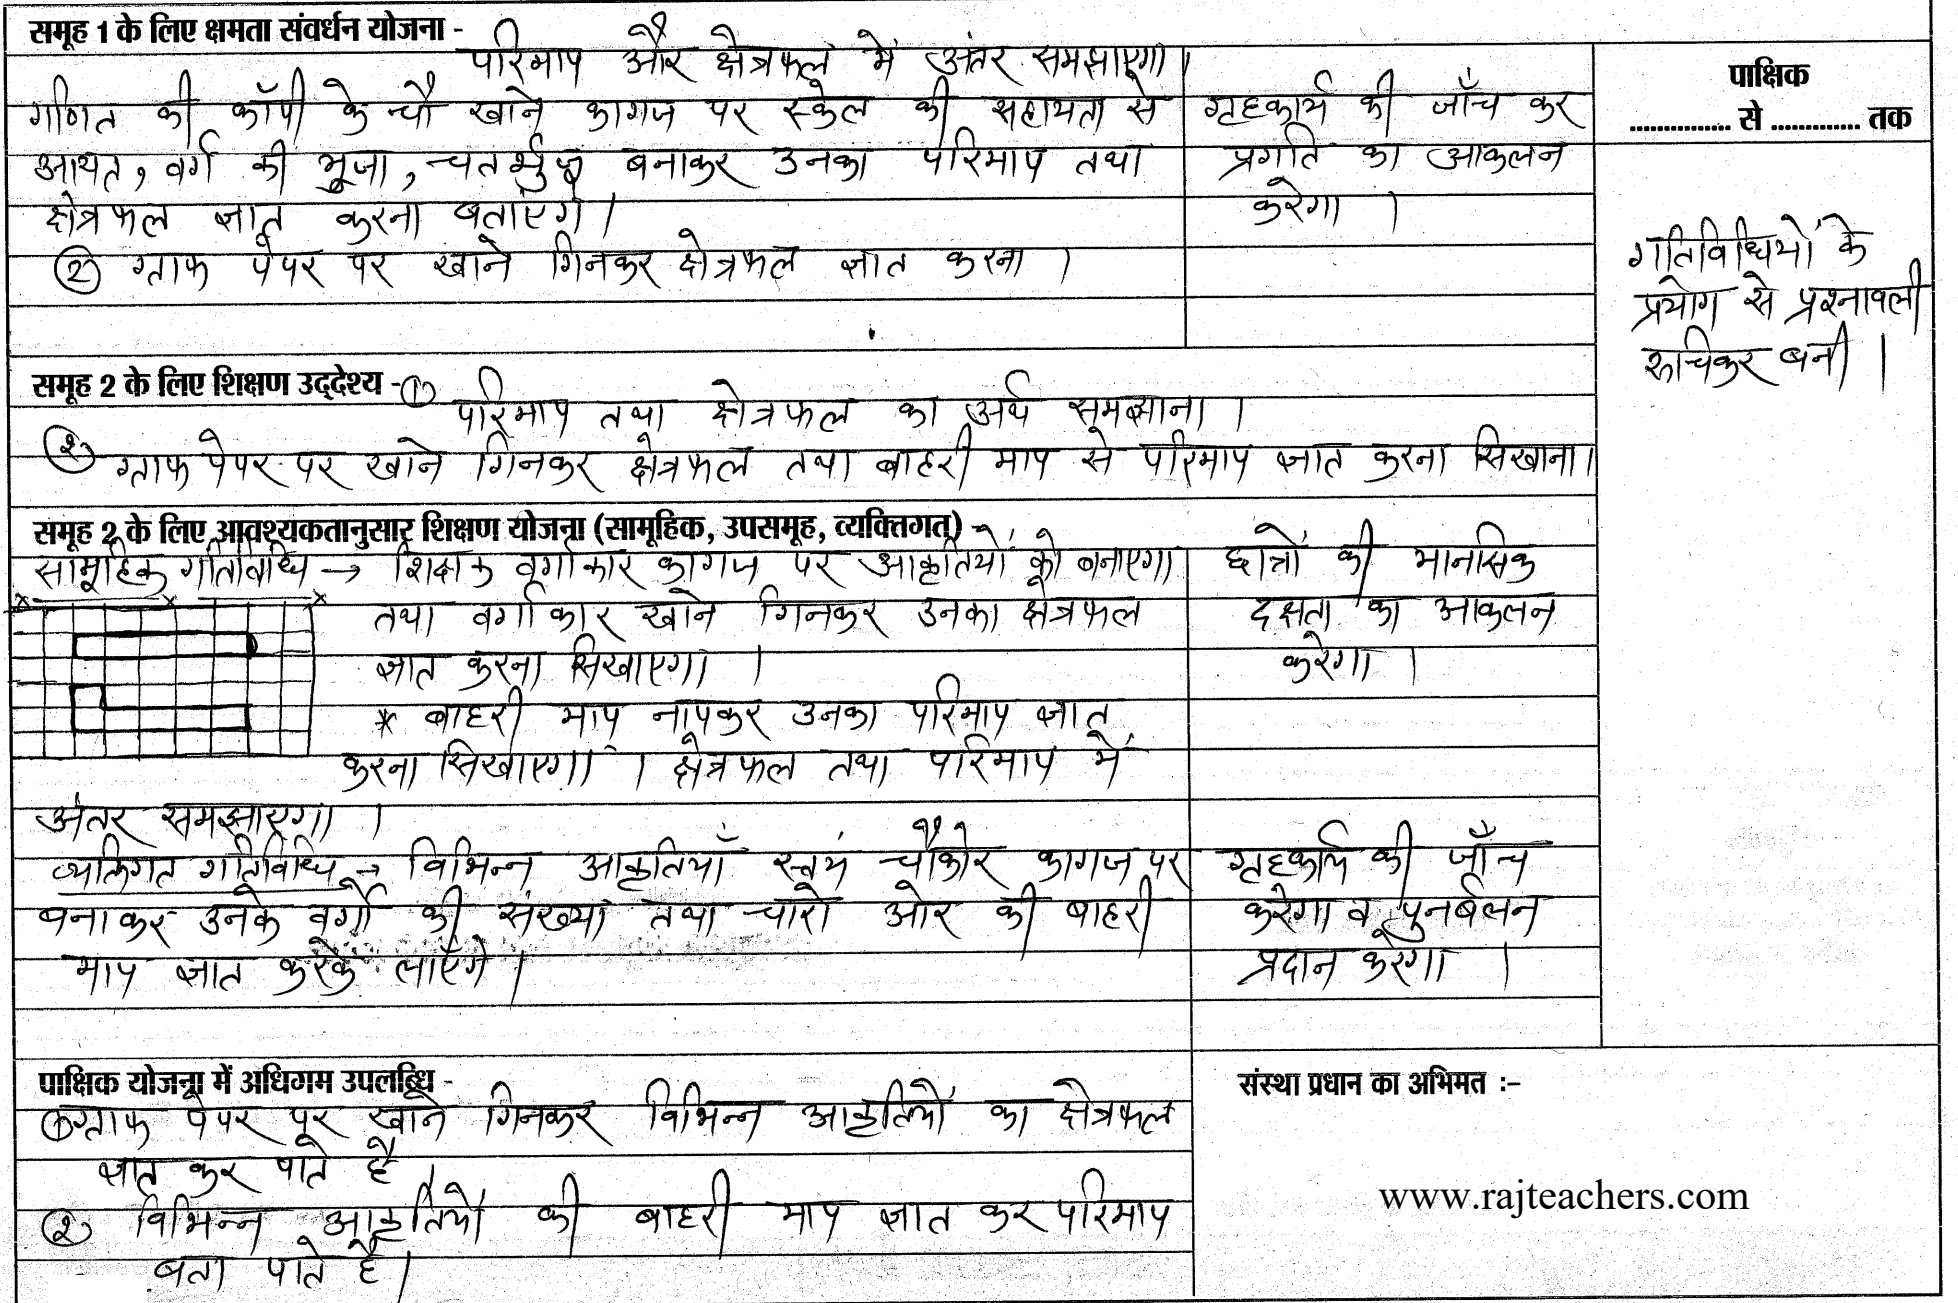 समूह 1 के लिए क्षमता संवर्धन योजना -
परिमाप और क्षेत्रफल में अंतर समझाएगा।
गणित की कॉपी के चौ खाने कागज पर स्केल की सहायता से
आयत, वर्ग की भुजा, चतर्भुज बनाकर उनका परिमाप तथा
क्षेत्रफल ज्ञात करना बताएंगे।
② ग्राफ पेपर पर खाने गिनकर क्षेत्रफल ज्ञात करना।
गृहकार्य की जाँच कर
प्रगति का आकलन
करेगा।
पाक्षिक
............... से ............. तक
गतिविधियों के
प्रयोग से प्रश्नावली
रूचिकर बनी।
समूह 2 के लिए शिक्षण उद्देश्य - ①
परिमाप तथा क्षेत्रफल का अर्थ समझाना।
② ग्राफ पेपर पर खाने गिनकर क्षेत्रफल तथा बाहरी माप से परिमाप ज्ञात करना सिखाना।
समूह 2 के लिए आवश्यकतानुसार शिक्षण योजना (सामूहिक, उपसमूह, व्यक्तिगत) -
सामूहिक गतिविधि → शिक्षक वर्गाकार कागज पर आकृतियों को बनाएगा
तथा वर्गाकार खाने गिनकर उनका क्षेत्रफल
ज्ञात करना सिखाएगा।
* बाहरी माप नापकर उनका परिमाप ज्ञात
करना सिखाएगा। क्षेत्रफल तथा परिमाप में
अंतर समझाएगा।
छात्रों की मानसिक
दक्षता का आकलन
करेगा।
व्यक्तिगत गतिविधि → विभिन्न आकृतियाँ स्वयं चौकोर कागज पर
बनाकर उनके वर्गों की संख्या तथा चारों ओर की बाहरी
माप ज्ञात करके लाएँगे।
गृहकार्य की जाँच
करेगा व पुनर्बलन
प्रदान करेगा।
पाक्षिक योजना में अधिगम उपलब्धि -
① ग्राफ पेपर पर खाने गिनकर विभिन्न आकृतियों का क्षेत्रफल
ज्ञात कर पाते है।
② विभिन्न आकृतियों की बाहरी माप ज्ञात कर परिमाप
बता पाते है।
संस्था प्रधान का अभिमत :-
www.rajteachers.com